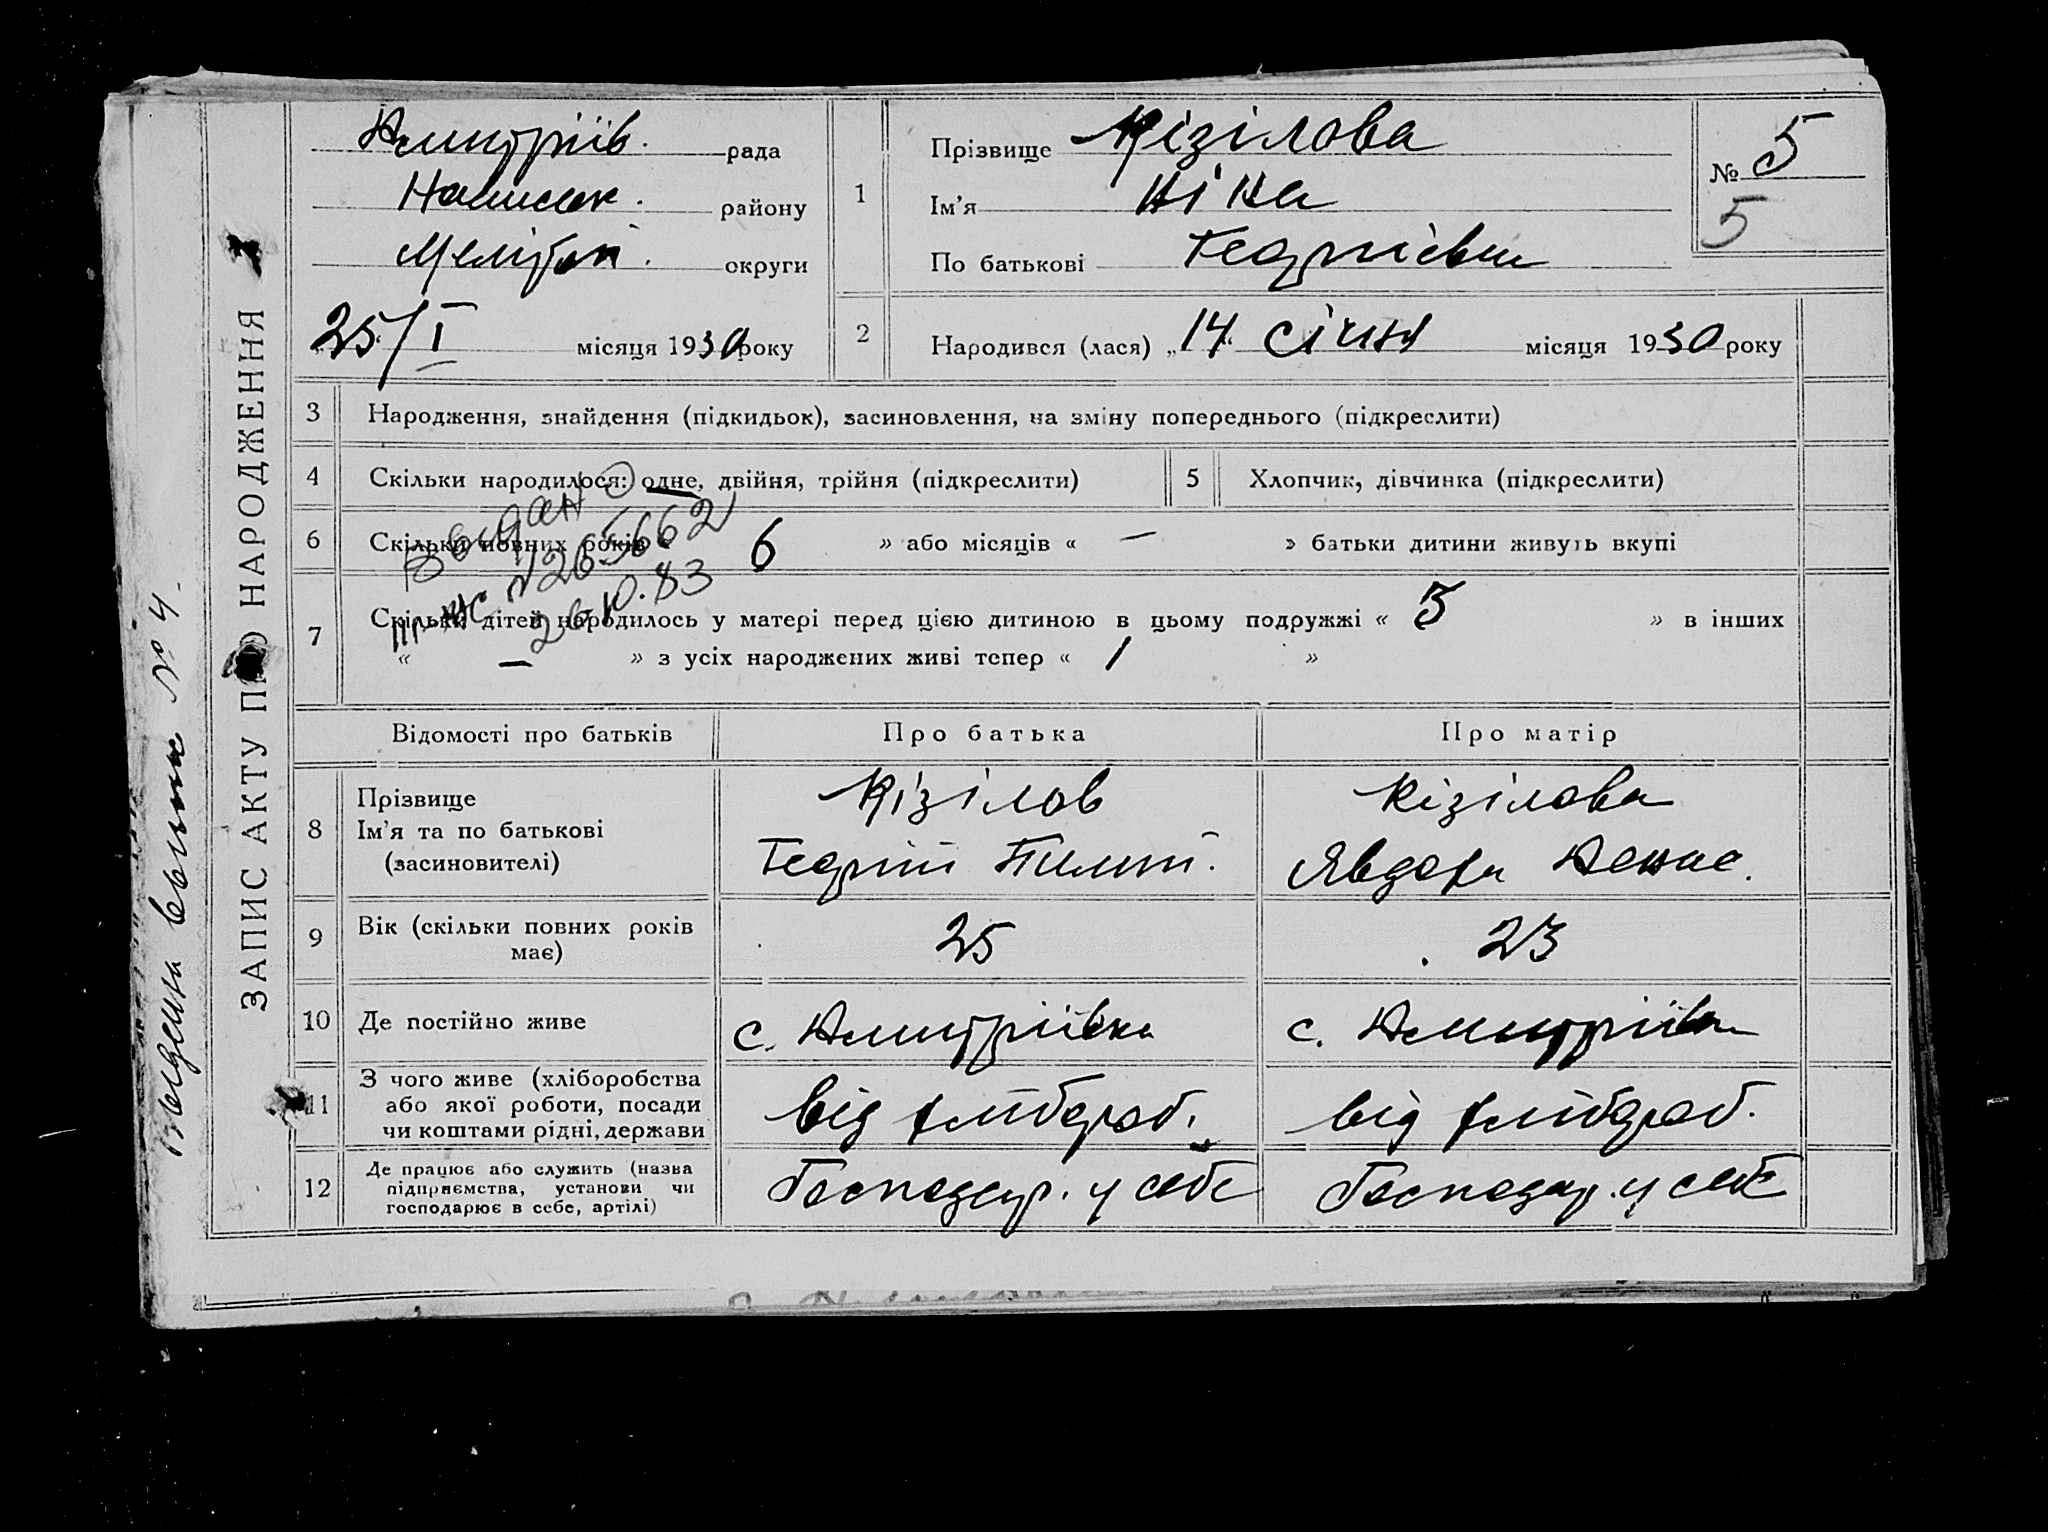 ЗАПИС АКТУ ПРО НАРОДЖЕННЯ
Дмитріїв. рада
району
Меліtоп. округи
25/I місяця 1930 року
1
Прізвище Кізілова
Ім'я Ніна
По батькові Георгієвна
№ 5
5
2
Народився (лася) „14“ січня місяця 1930 року
3 Народження, знайдення (підкидьок), засиновлення, на зміну попереднього (підкреслити)
4 Скільки народилося: одне, двійня, трійня (підкреслити)
5 Хлопчик, дівчинка (підкреслити)
6 Скільки повних років « 6 » або місяців « — » батьки дитини живуть вкупі
7 Скільки дітей народилось у матері перед цією дитиною в цьому подружжі « 3 » в інших
« — » з усіх народжених живі тепер « 1 »
Выдано
ІІІ-ЖС №265662
26.10.83
Відомості про батьків
Про батька
Про матір
8 Прізвище
Ім'я та по батькові
(засиновителі)
Кізілов
Георгій Пилип.
Кізілова
Явдоха Денис.
9 Вік (скільки повних років
має)
25
23
10 Де постійно живе
с. Дмитріївка
с. Дмитріївка
11 З чого живе (хліборобства
або якої роботи, посади
чи коштами рідні, держави
від хлібороб.
від хлібороб.
12 Де працює або служить (назва
підприємства, установи чи
господарює в себе, артілі)
Господар. у себе
Господар. у себе
Выдана выпис № 4